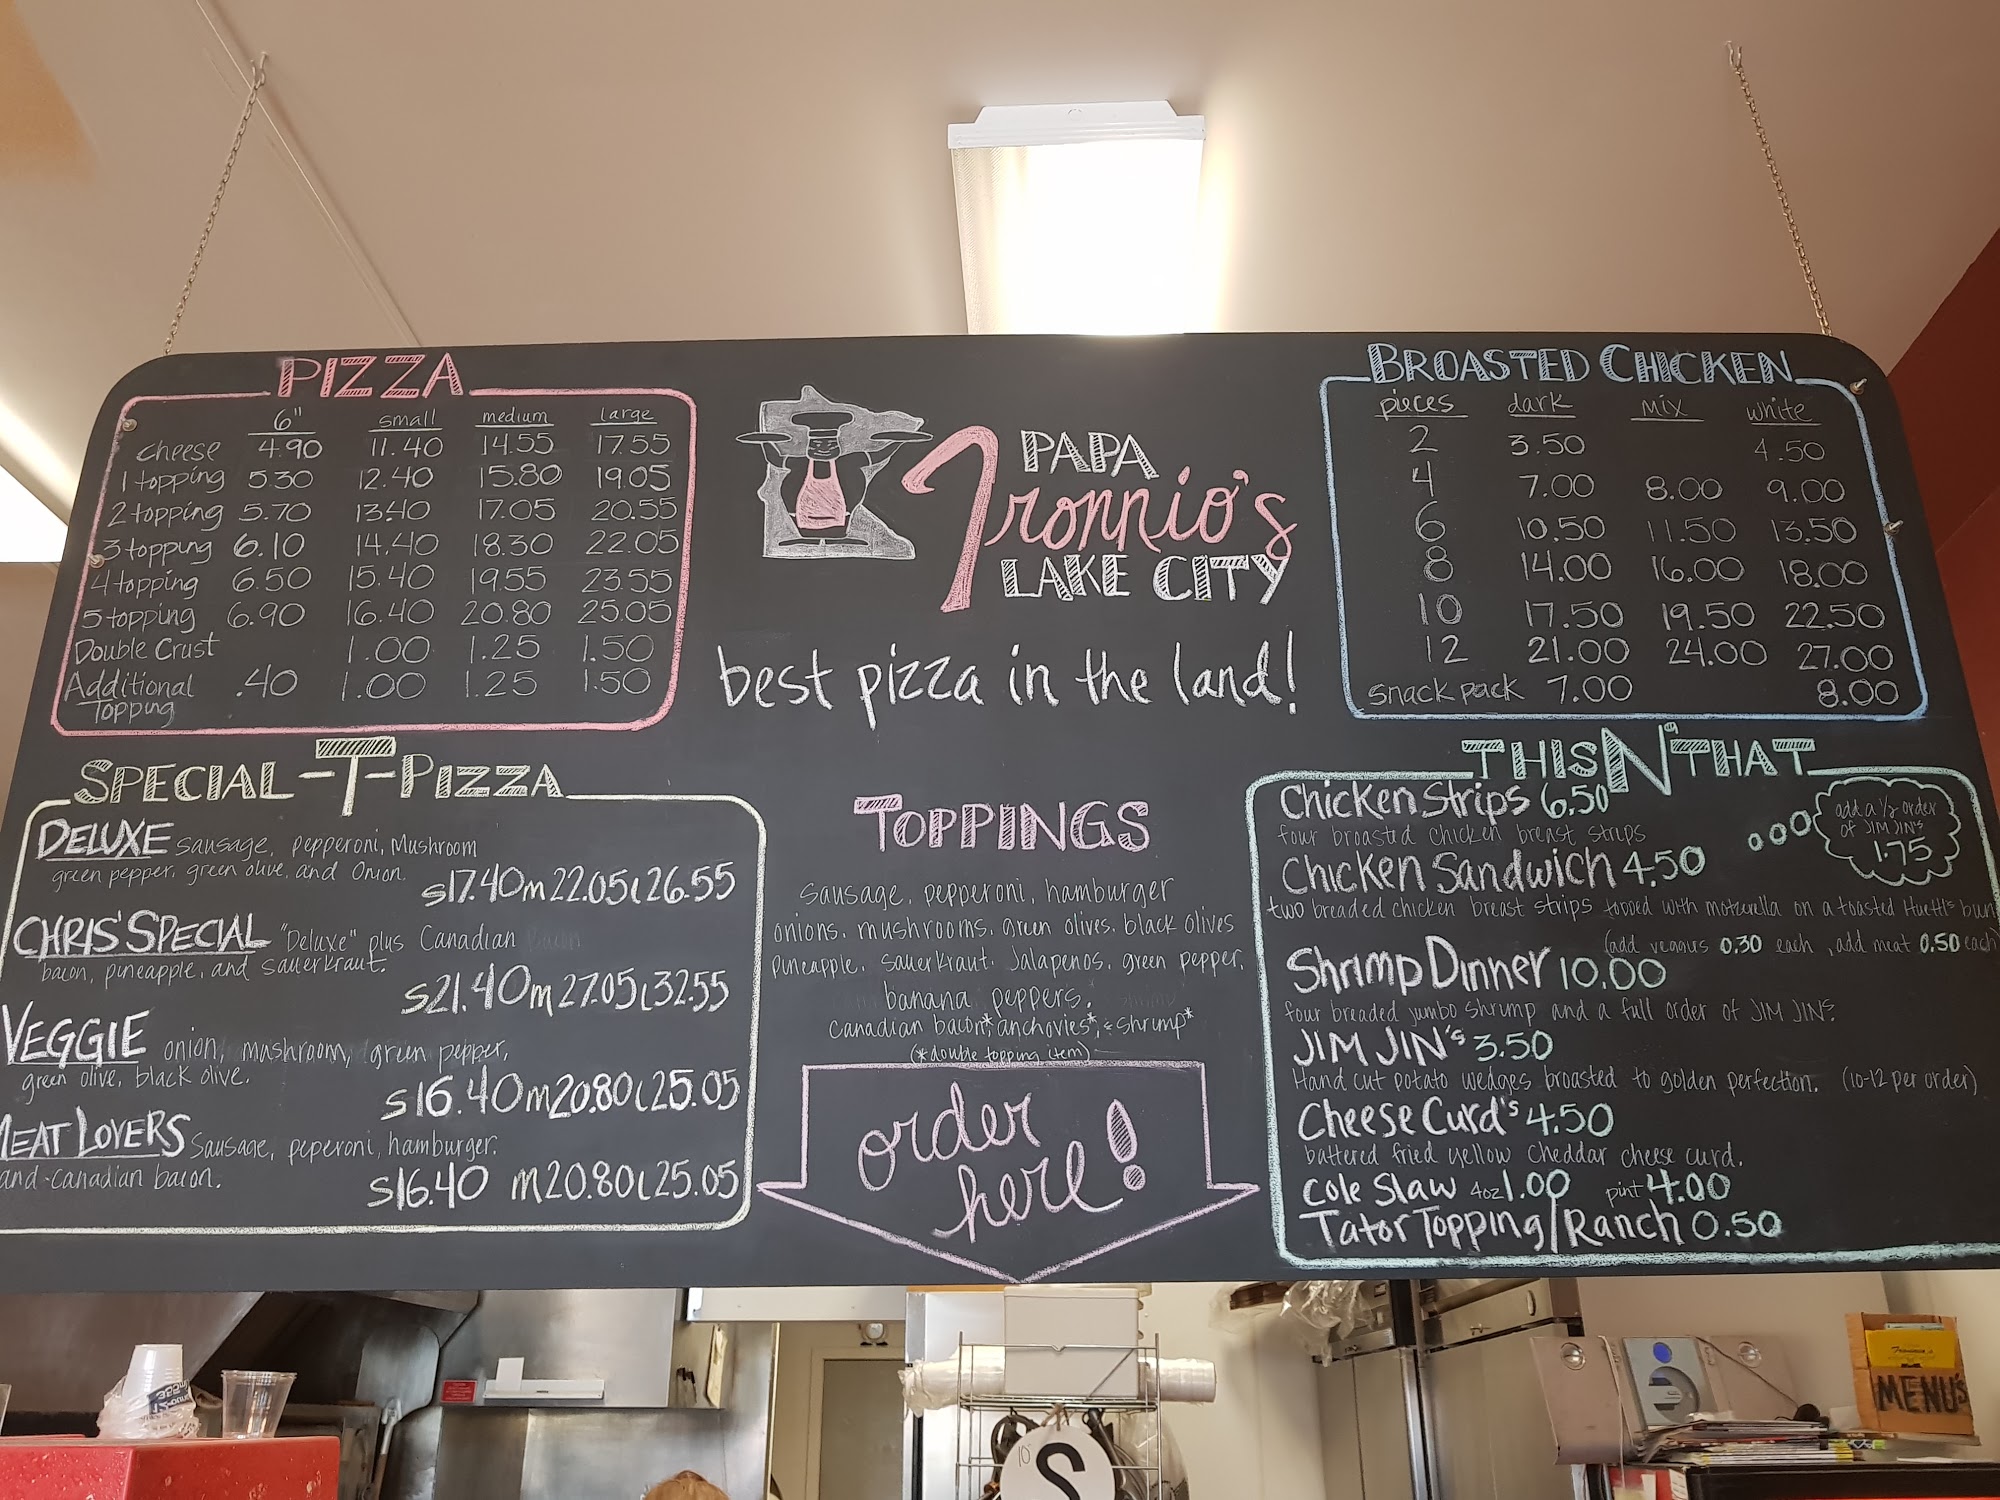 PIZZA
6" small medium large
cheese 4.90 11.40 14.55 17.55
1 topping 5.30 12.40 15.80 19.05
2 topping 5.70 13.40 17.05 20.55
3 topping 6.10 14.40 18.30 22.05
4 topping 6.50 15.40 19.55 23.55
5 topping 6.90 16.40 20.80 25.05
Double Crust 1.00 1.25 1.50
Additional .40 1.00 1.25 1.50
Topping
SPECIAL-T-PIZZA
DELUXE sausage, pepperoni, Mushroom
green pepper, green olive, and Onion.
S17.40 m22.05 L26.55
CHRIS' SPECIAL "Deluxe" plus Canadian
bacon, pineapple, and sauerkraut.
S21.40 m27.05 L32.55
VEGGIE onion, mushroom, green pepper,
green olive, black olive.
S16.40 m20.80 L25.05
MEAT LOVERS Sausage, peperoni, hamburger.
and canadian bacon.
S16.40 m20.80 L25.05
PAPA
Tronnio's
LAKE CITY
best pizza in the land!
TOPPINGS
sausage, pepperoni, hamburger
onions, mushrooms, green olives, black olives
pineapple, sauerkraut, Jalapenos, green pepper,
banana peppers.
Canadian bacon*, anchovies*, & shrimp*
(*double topping item)
order
here!
BROASTED CHICKEN
pieces dark mix white
2 3.50 4.50
4 7.00 8.00 9.00
6 10.50 11.50 13.50
8 14.00 16.00 18.00
10 17.50 19.50 22.50
12 21.00 24.00 27.00
snack pack 7.00 8.00
THIS N' THAT
Chicken Strips 6.50
four broasted chicken breast strips
add a 1/2 order
of JIM JIN's
1.75
Chicken Sandwich 4.50
two breaded chicken breast strips topped with mozzarella on a toasted Huettl's bun
(add veggies 0.30 each, add meat 0.50 each)
Shrimp Dinner 10.00
four breaded jumbo shrimp and a full order of JIM JIN's.
JIM JIN's 3.50
Hand cut potato wedges broasted to golden perfection. (10-12 per order)
Cheese Curd's 4.50
battered fried yellow Cheddar cheese curd.
Cole Slaw 4oz 1.00 pint 4.00
Tator Topping/Ranch 0.50
MENU'S
S
10